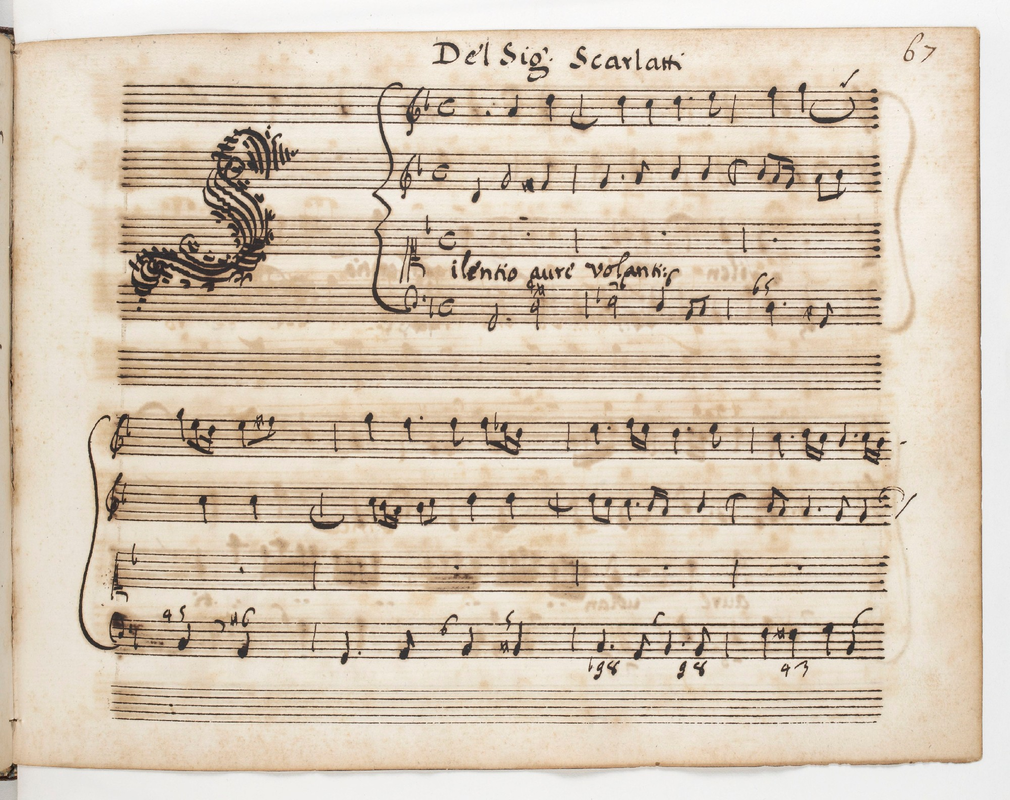 67
Del Sig. Scarlatti
Silentio aure volanti
6 5
4 5 6
6 5 6 6
9 8 9 8 4 3